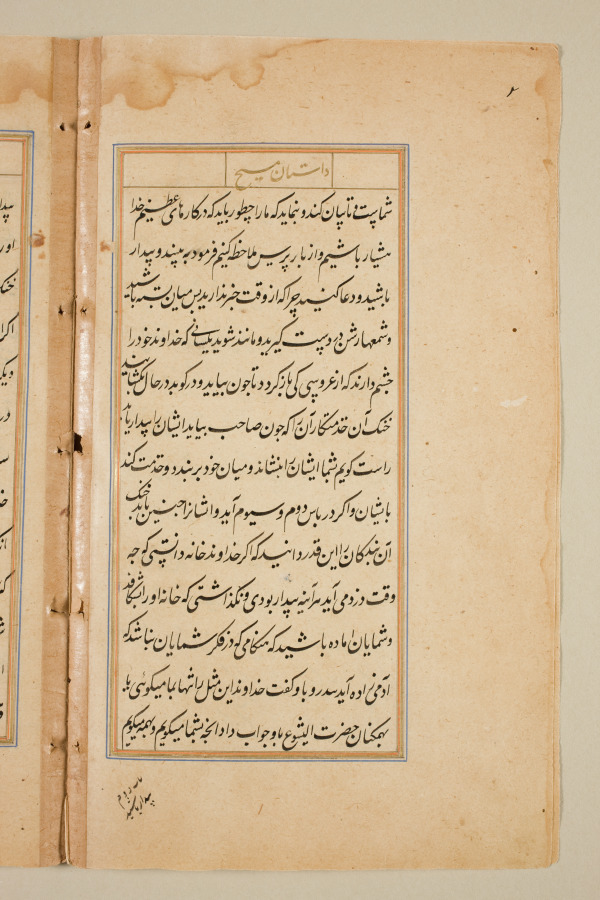 داستان مسیح
شما پست و تاپیان کند و نماید که ما را چطور باید که در کارهای عظیم خدا
هشیار باشیم و از ما بازپرس ملاحظه کنیم فرمود به بینید و بیدار
باشید و دعا کنید چرا که از وقت خبر ندارید پس میان بسته باشید
و شمعها روشن در دست گیرید و مانند شوید بکسانی که خداوند خود را
چشم دارند که از عروسی کی باز گردد تا چون بیاید و در کوبد در حال بگشایند
خنک آن خدمتکاران را که چون صاحب بیاید ایشان را بیدار یابد
راست گویم شما ایشان را بنشاند و میان خود بر بندد و خدمت کند
بایشان و اگر در پاس دوم و سیوم آید و ایشانرا چنین یابد خنک
آن بندگان را این قدر دانید که اگر خداوند خانه دانستی که چه
وقت دزد می آید هرآینه بیدار بودی و نگذاشتی که خانه او را بشکافد
و شمایان آماده باشید که هنگامی که در فکر شمایان نباشد که
آدمی زاده آید پدرو باو گفت خداوند این مثل را تنها بما میگوئی یا
بهمگنان حضرت ایشوع باو جواب داد آنچه بشما میگویم و بهمه میگویم
بیدار باشید